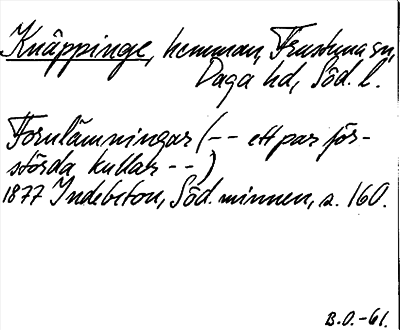 Knäppinge, hemman, Frustuna sn,
Daga hd, Söd. l.
Fornlämningar (-- ett par för-
störda kullar --)
1877 Indebetou, Söd. minnen, s. 160.
B.O.-61.